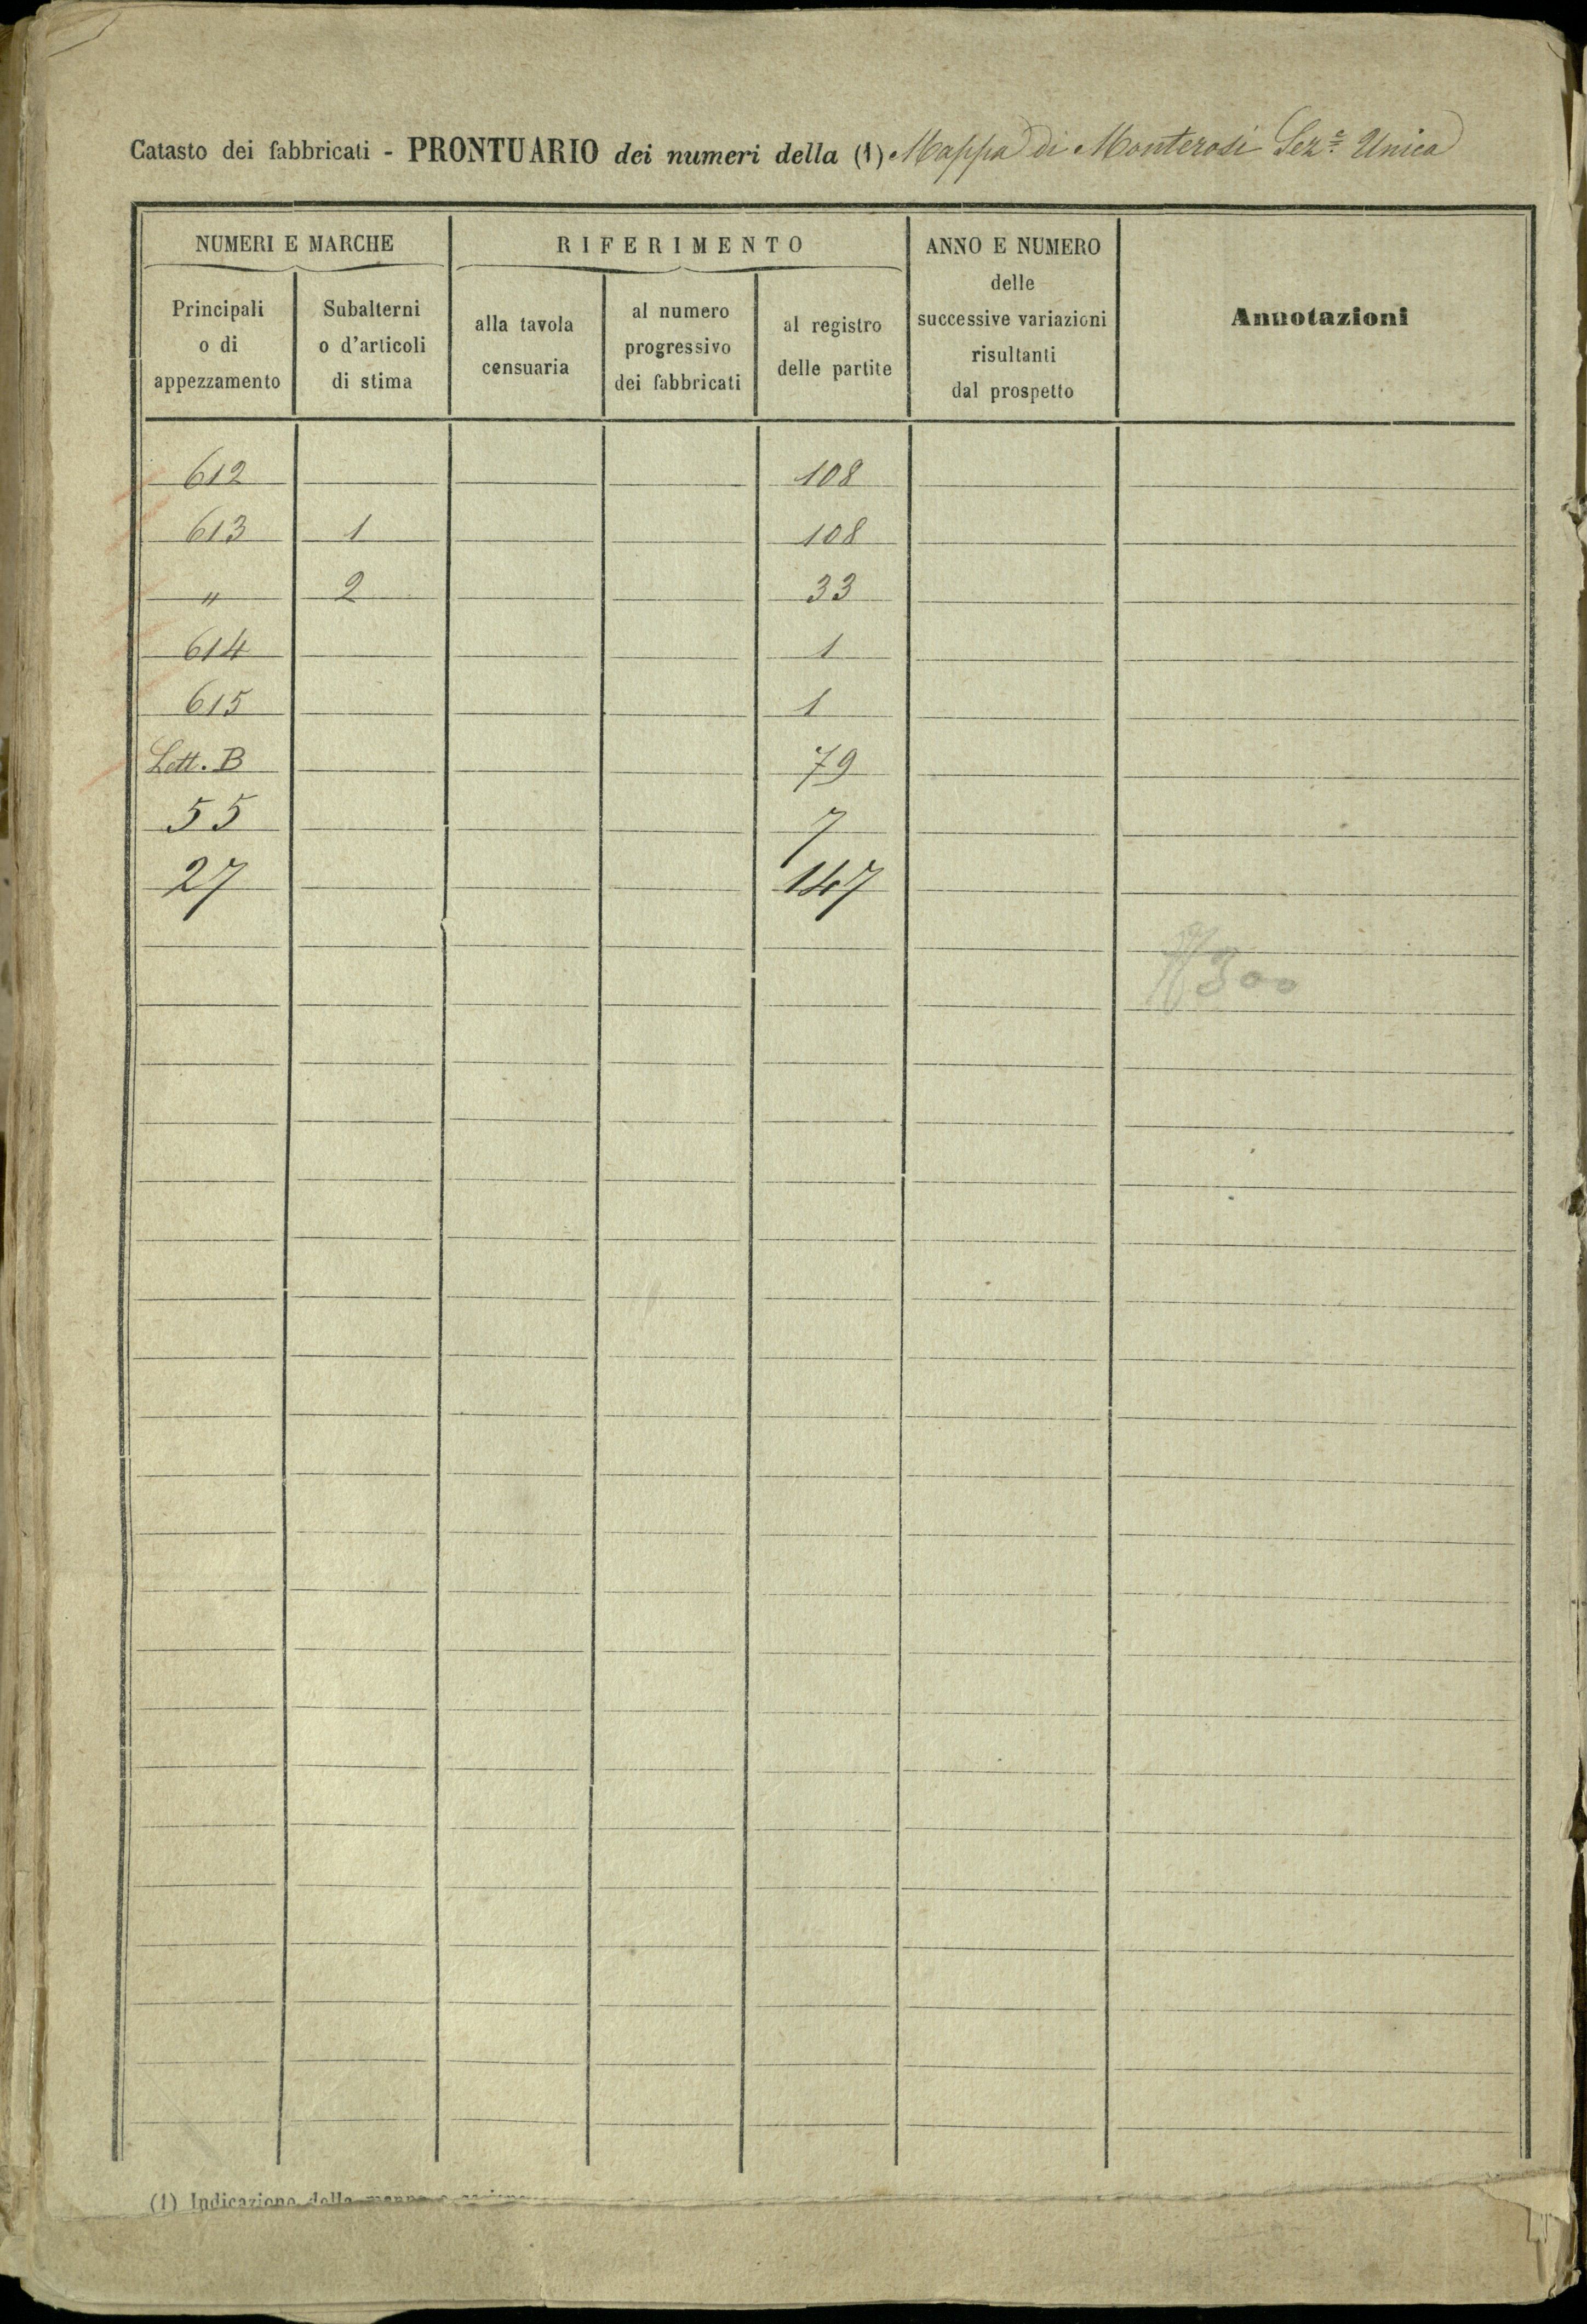 Catasto dei fabbricati - PRONTUARIO dei numeri della (1) Mappa di Monterosi Sez.ᵉ Unica
NUMERI E MARCHE
RIFERIMENTO
ANNO E NUMERO
delle
successive variazioni
risultanti
dal prospetto
Annotazioni
Principali
o di
appezzamento
Subalterni
o d'articoli
di stima
alla tavola
censuaria
al numero
progressivo
dei fabbricati
al registro
delle partite
612 108
613 1 108
" 2 33
614 1
615 1
Lett. B 79
55 7
27 147
300
(1) Indicazione della mappa o